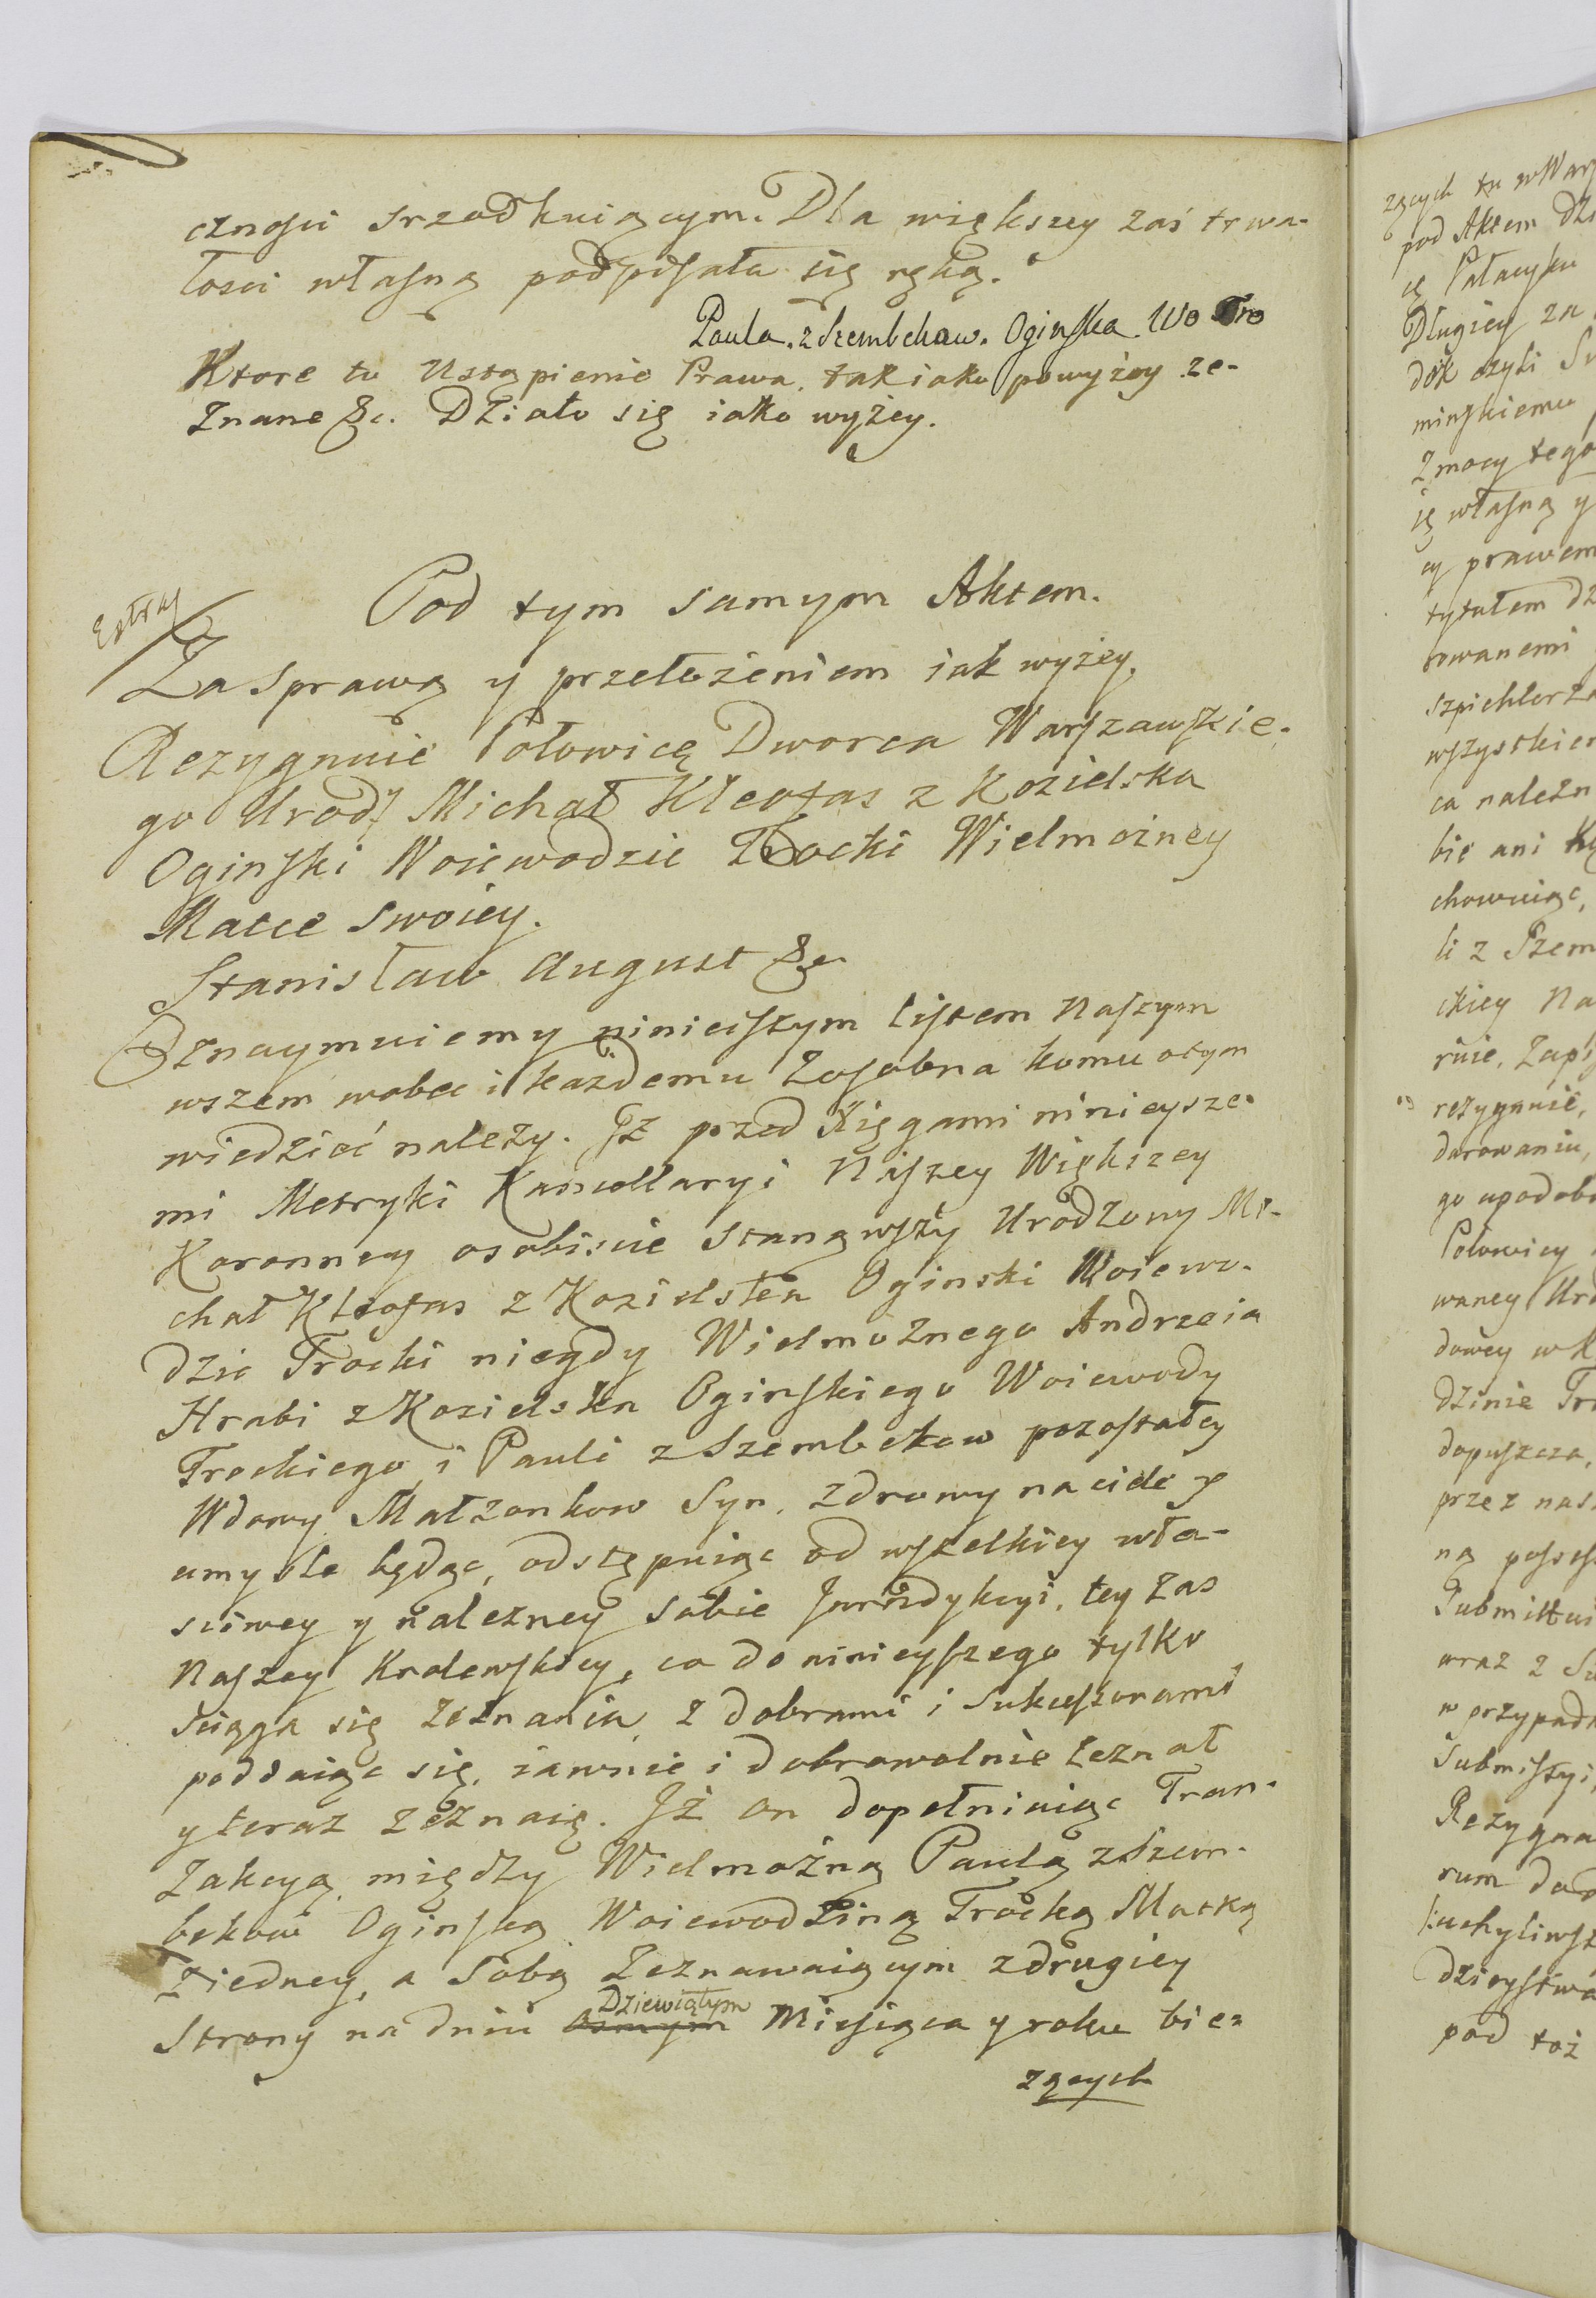 cznosci srzodkuiącym. Dla większey zaś trwa-
łosci własną podpisała się ręką.
Paula. z Szembekow. Oginska Wo Tro
Ktore to Ustąpienie Prawa, tak iako powyżey ze-
znane &c. Działo się iako wyżey.
Extrax
Pod tym samym Aktem.
Za sprawą y przełożeniem iak wyżey.
Rezygnuie Połowicę Dworca Warszawskie-
go Urodz Michał Kleofas z Kozielska
Oginski Woiewodzic Trocki Wielmożney
Matce Swoiey.
Stanisław August &c
Oznaymuiemy ninieiszym listem Naszym
wszem wobec i każdemu Zosobna komu otym
wiedzieć należy. Iż przed Xięgami ninieysze-
mi Metryki Kancellaryi Naszey Większey
Koronney osobiscie Stanąwszy Urodzony Mi-
chał Kleofas z Kozielska Oginski Woiewo-
dzic Trocki niegdy Wielmożnego Andrzeia
Hrabi z Kozielska Oginskiego Woiewody
Trockiego i Pauli z Szembekow pozostałey
Wdowy Małzonkow Syn, zdrowy na ciele y
umysle będąc, odstępuiąc od wszelkiey wła-
sciwey y należney sobie Jurizdykcyi, tey zas
Naszey Krolewskiey, co do ninieyszego tylko
sciąga się Zeznania, z dobrami i Sukcessorami
poddaiąc się, iawnie i dobrowolnie zeznał
y teraz zeznaię. Iż on dopełniaiąc Tran-
zakcyą między Wielmożną Paulą z Szem-
bekow Oginską Woiewodziną Trocką Matką
z iedney, a Sobą Zeznawaiącym z drugiey
Dziewiątym
Strony na dniu Osmym Miesiąca y roku bie-
zących
zących tu w
pod Aktem
Długiey za
minskiemu
Z mocy tego
ię własną y
prawem
tytułem
ca należn
bie ani
chowuiąc,
li z Szem
ckiey Na
rezygnuie,
darowaniu,
go upodob
Połowicy
waney Uro
dowey w K
dzinie Tro
dopuszcza,
przez nas
wraz z Su
w przypadk
Submissyi
Rezygna
rum
pod toż